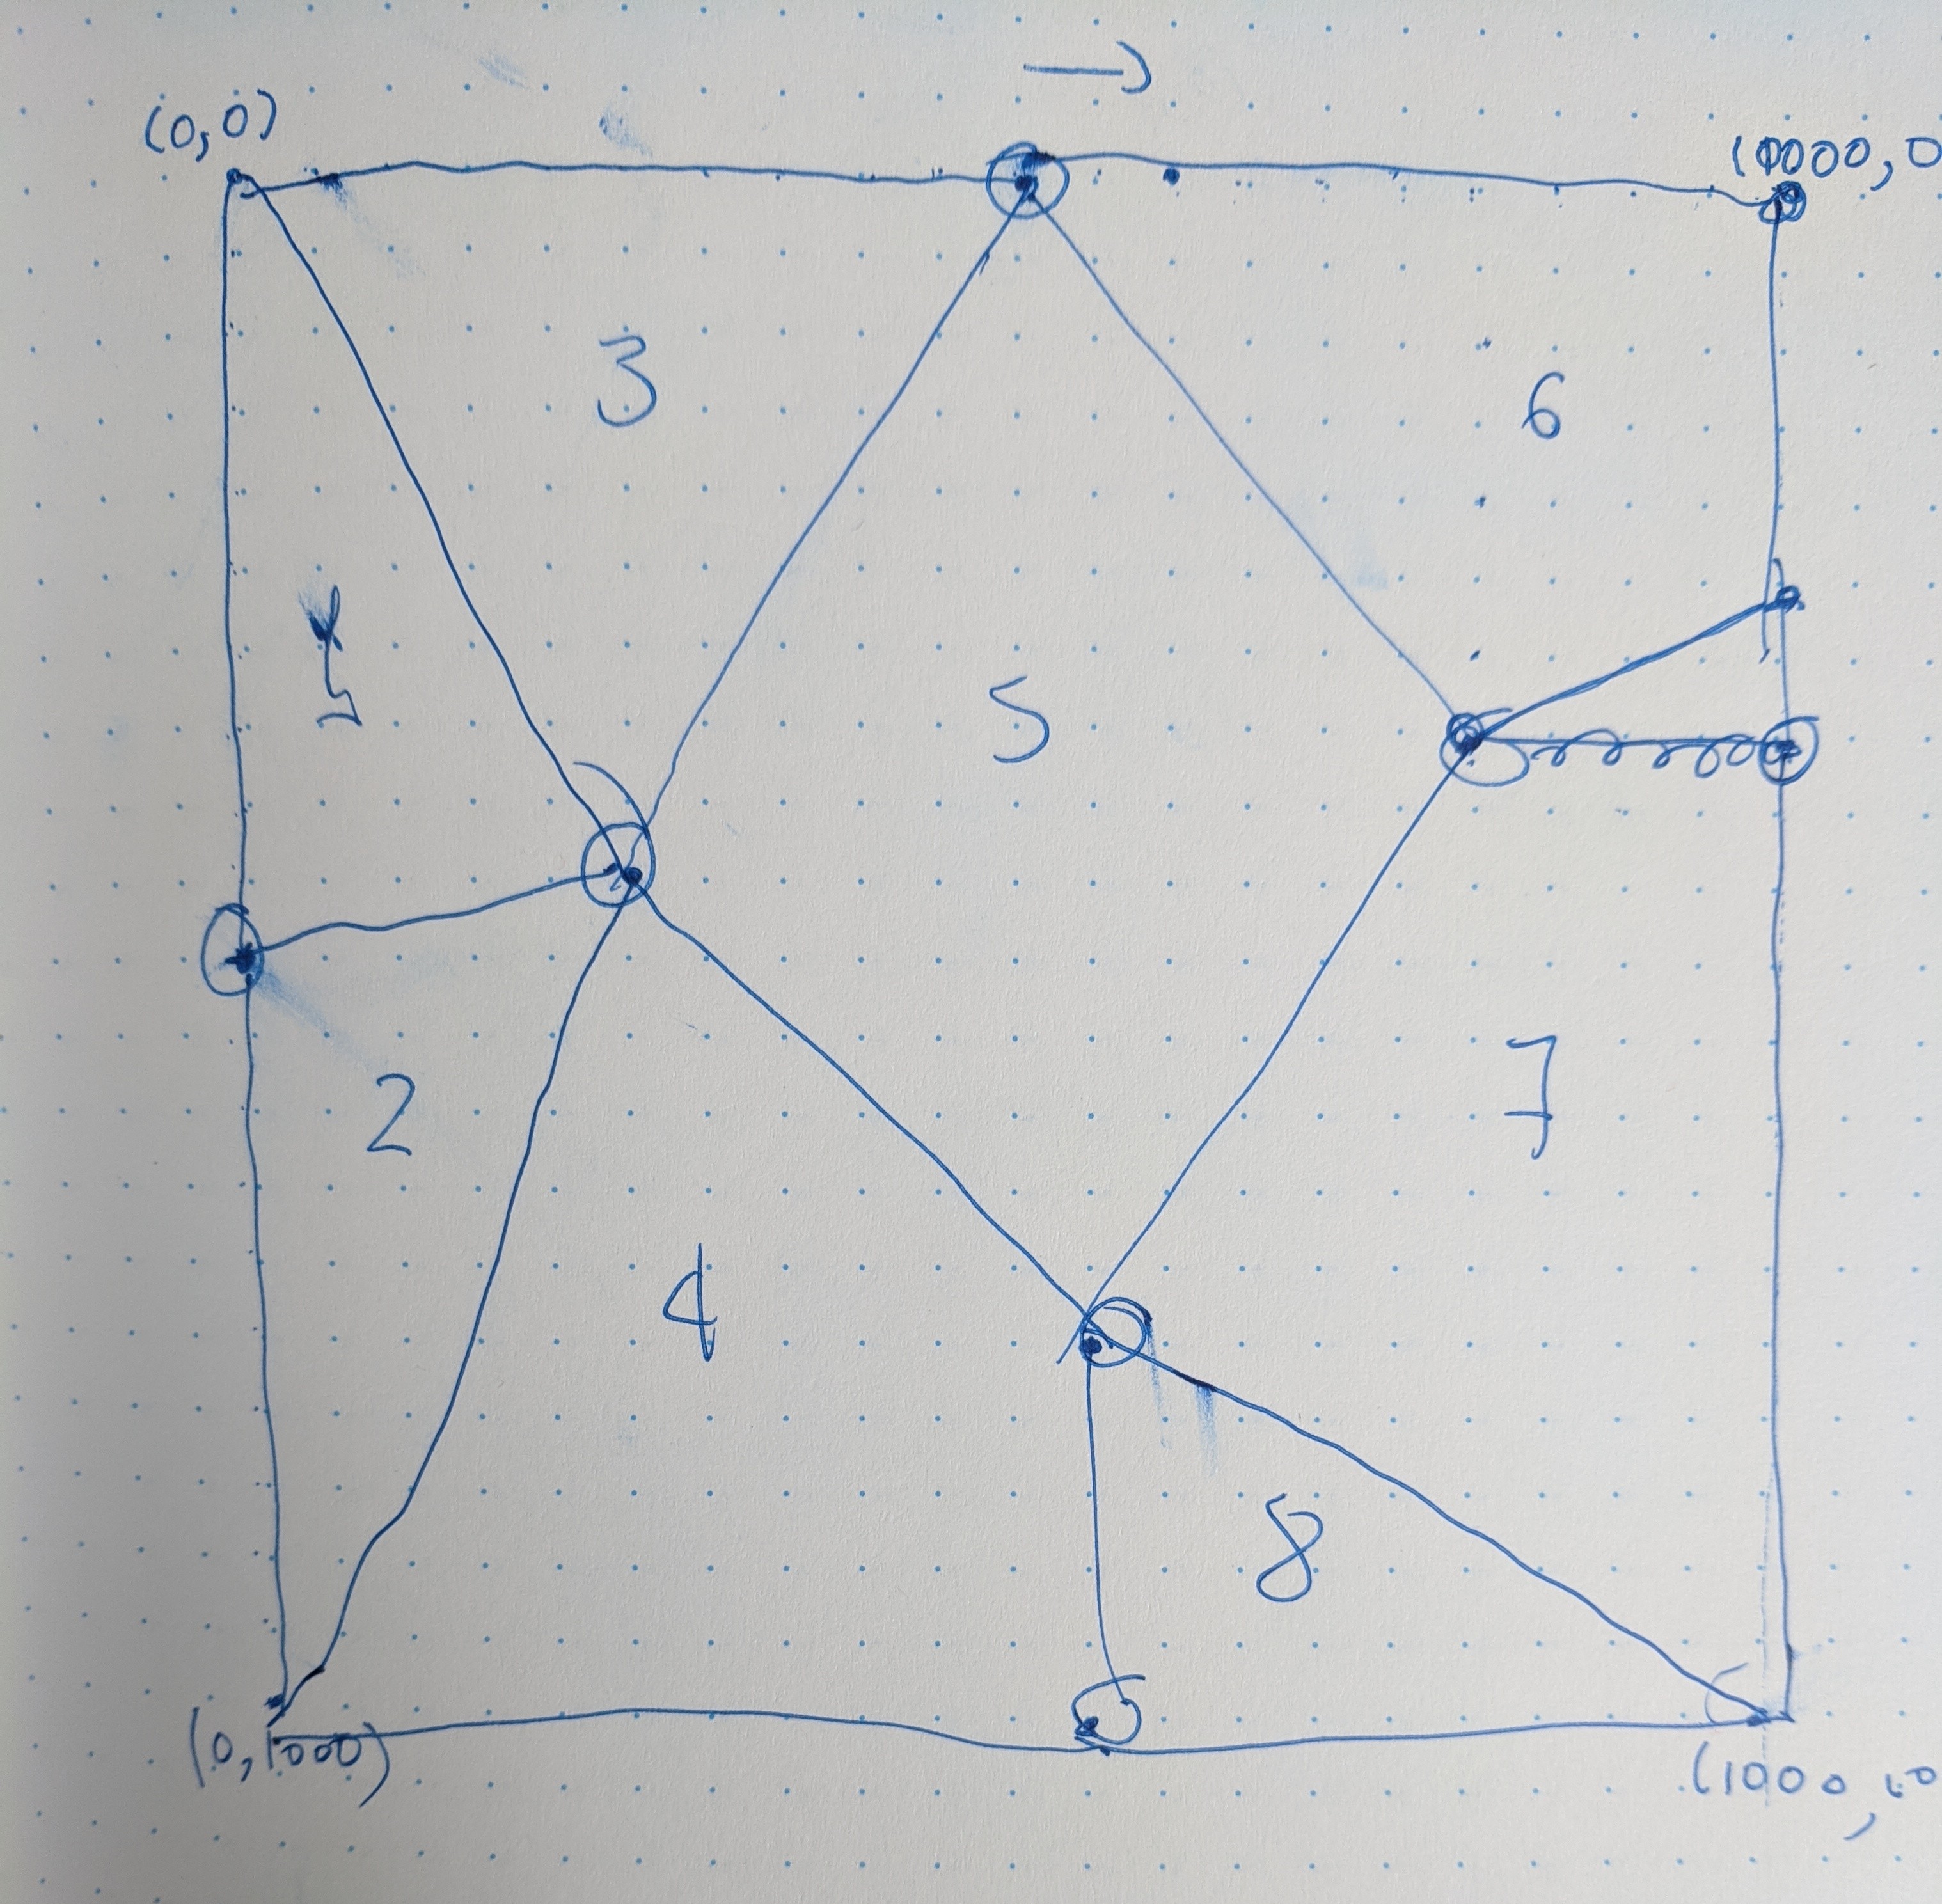 (0,0)
(1000,0
3
6
1
5
2
7
4
8
(0,1000)
(1000,10